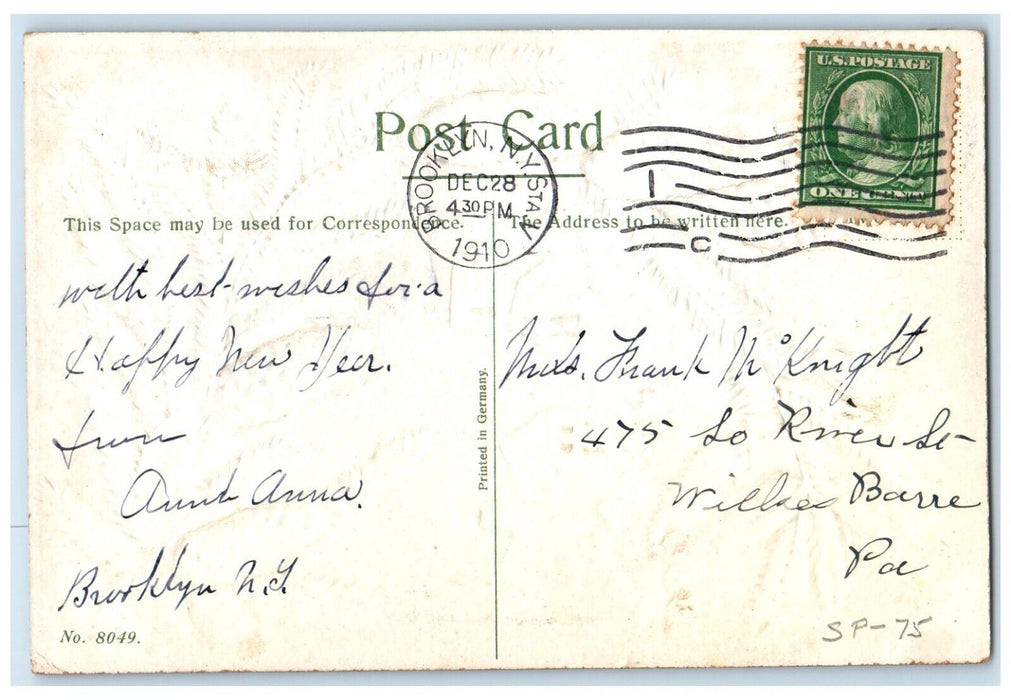 U.S.POSTAGE
ONE CENT
Post Card
BROOKLYN, N.Y. STA.
DEC 28
4 30 PM
1910
1
C
This Space may be used for Correspondence.
The Address to be written here.
with best wishes for a
Happy New Year.
from
Aunt Anna.
Brooklyn N.Y.
No. 8049.
Printed in Germany.
Mrs. Frank McKnight
475 So River St
Wilkes Barre
Pa
SP-75